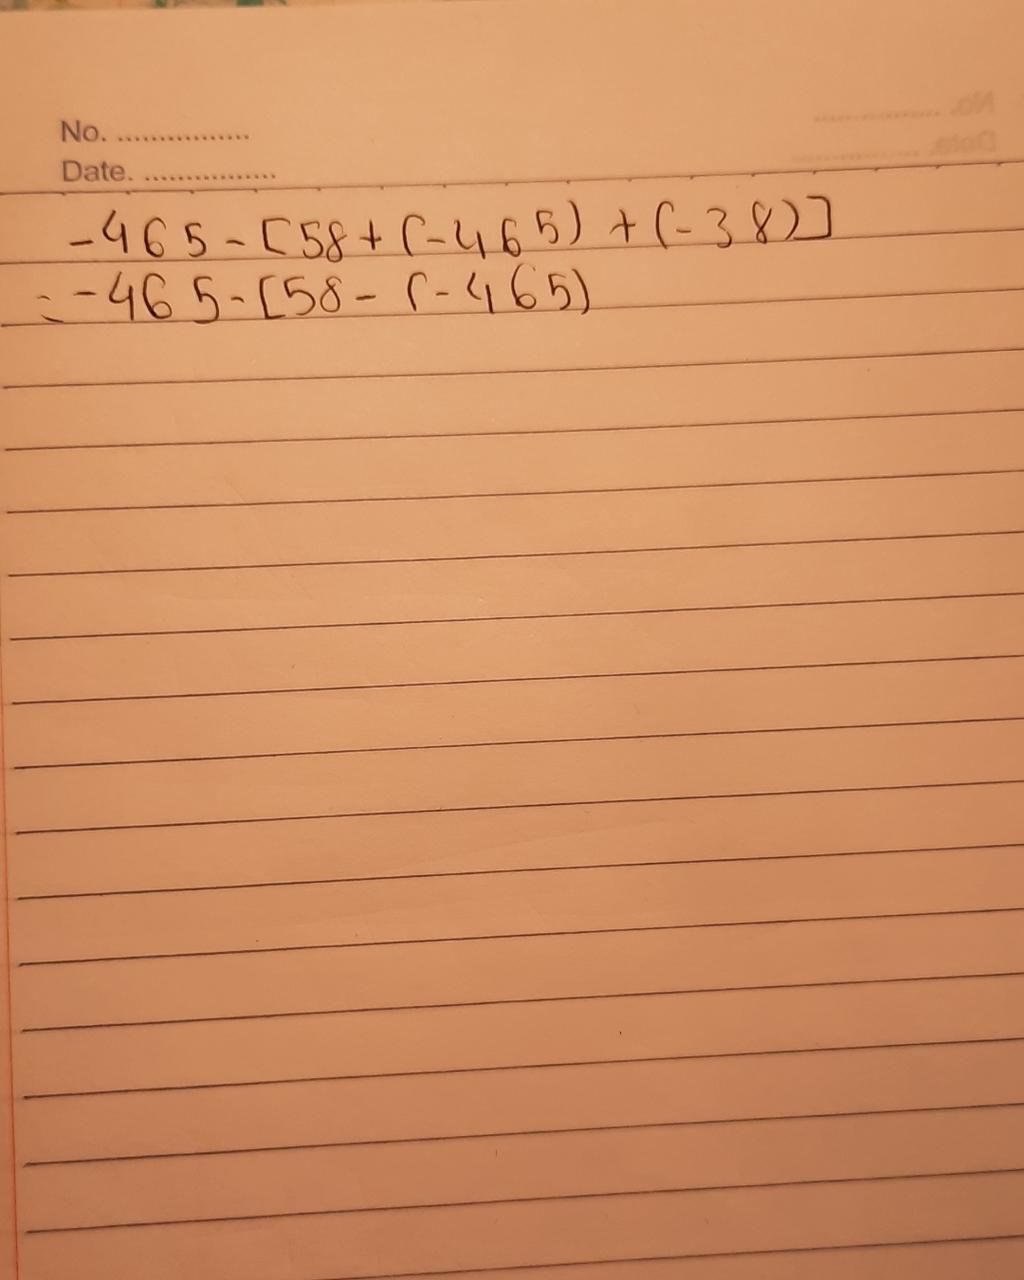 No. ................
Date. ................
-465-[58+(-465)+(-38)]
=-465-[58-(-465)